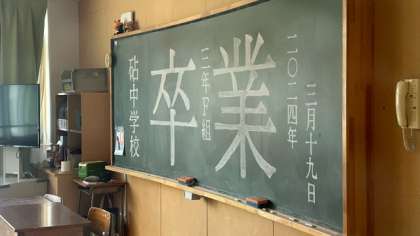 二〇二四年
三月十九日
卒業
三年P組
砧中学校